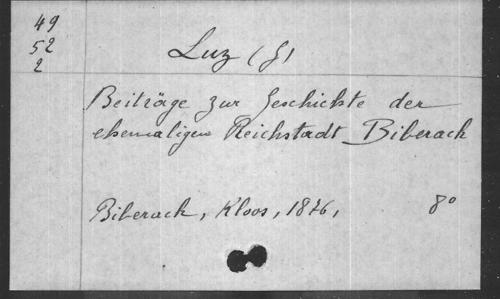 49
52
2
Luz (G)
Beiträge zur Geschichte der
ehemaligen Reichstadt Biberach
Biberach, Kloos, 1876, 8°